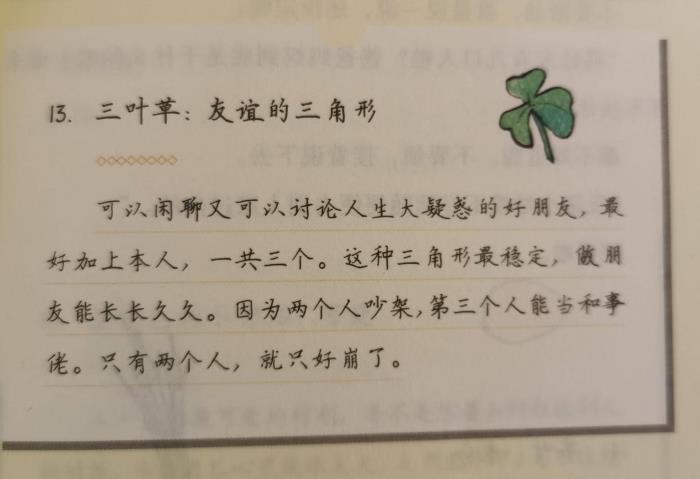 13. 三叶草：友谊的三角形
可以闲聊又可以讨论人生大疑惑的好朋友，最
好加上本人，一共三个。这种三角形最稳定，做朋
友能长长久久。因为两个人吵架，第三个人能当和事
佬。只有两个人，就只好崩了。